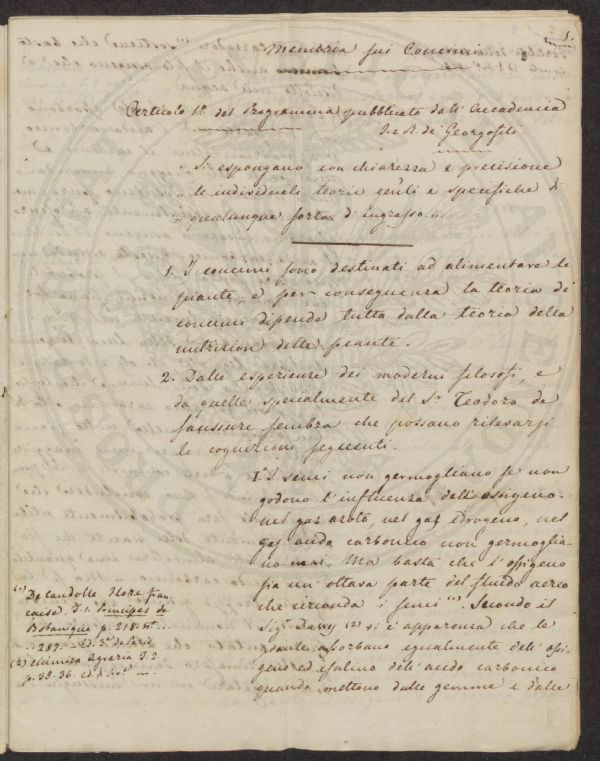 1.
Memoria sui Concimi
Articolo 1o. del Programma pubblicato dall' Accademia
I. e R. de' Georgofili
" Si espongano con chiarezza e precisione
" le individuali teorie gen̄li e specifiche di
" qualunque sorta d' ingrasso. "
1. I concimi sono destinati ad alimentare le
piante, e per conseguenza la teoria dei
concimi dipende tutta dalla teoria della
nutrizion delle piante.
2. Dalle esperienze dei moderni filosofi, e
da quelle specialmente del Sr. Teodoro de
Saussure sembra che possano rilevarsi
le cognizioni seguenti.
1o. I semi non germogliano se non
godono l' influenza dell' ossigeno.
nel gaz azoto, nel gaz idrogeno, nel
gaz acido carbonico non germoglia-
no mai. Ma basta che l' ossigeno
sia un' ottava parte del fluido aereo
che circonda i semi (1). Secondo il
Sigr. Dawy (2) vi è apparenza che le
piante assorbano egualmente dell' ossi-
geno ed esalino dell' acido carbonico
quando mettono dalle gemme e dalle
(1) De Candolle Flore fran-
caise. T. 1. Principes de
Botanique p. 218.
287. Ed. 3a. de Paris
(2) Chimica Agraria T. 2.
p. 35. 36. ed.